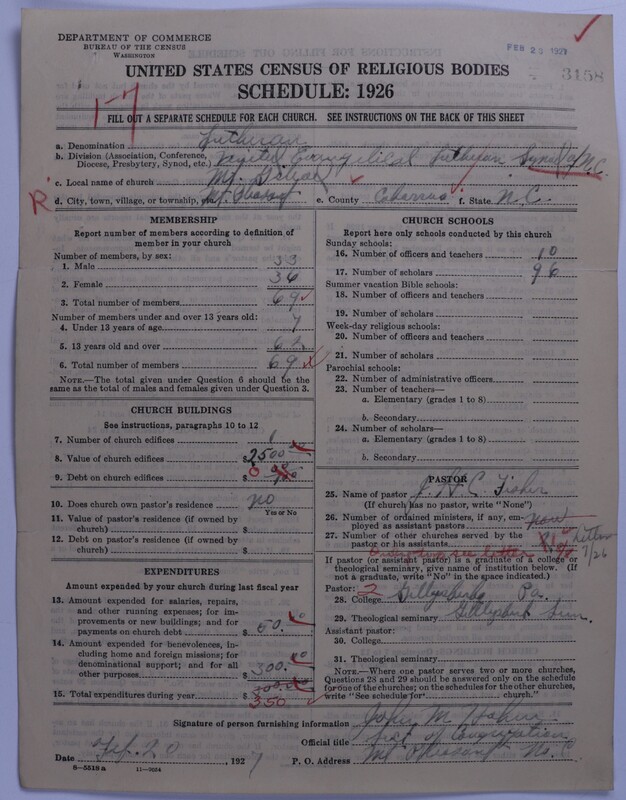 DEPARTMENT OF COMMERCE
BUREAU OF THE CENSUS
WASHINGTON
FEB 23 1927
3158
UNITED STATES CENSUS OF RELIGIOUS BODIES
SCHEDULE: 1926
1-7
FILL OUT A SEPARATE SCHEDULE FOR EACH CHURCH. SEE INSTRUCTIONS ON THE BACK OF THIS SHEET
a. Denomination Lutheran
b. Division (Association, Conference, Diocese, Presbytery, Synod, etc.) United Evangelical Lutheran Synod of N.C.
c. Local name of church Mt. Gilead
R d. City, town, village, or township, Mt. Pleasant e. County Cabarrus f. State N.C.
MEMBERSHIP
Report number of members according to definition of member in your church
Number of members, by sex:
1. Male 33
2. Female 36
3. Total number of members 69
Number of members under and over 13 years old:
4. Under 13 years of age 7
5. 13 years old and over 62
6. Total number of members 69
NOTE.—The total given under Question 6 should be the same as the total of males and females given under Question 3.
CHURCH BUILDINGS
See instructions, paragraphs 10 to 12
7. Number of church edifices 1
8. Value of church edifices $2500.00
9. Debt on church edifices $ 0
10. Does church own pastor's residence no
Yes or No
11. Value of pastor's residence (if owned by church) $
12. Debt on pastor's residence (if owned by church) $
EXPENDITURES
Amount expended by your church during last fiscal year
13. Amount expended for salaries, repairs, and other running expenses; for improvements or new buildings; and for payments on church debt $ 50.00
14. Amount expended for benevolences, including home and foreign missions; for denominational support; and for all other purposes $ 300.00
15. Total expenditures during year $ 350
CHURCH SCHOOLS
Report here only schools conducted by this church
Sunday schools:
16. Number of officers and teachers 10
17. Number of scholars 96
Summer vacation Bible schools:
18. Number of officers and teachers
19. Number of scholars
Week-day religious schools:
20. Number of officers and teachers
21. Number of scholars
Parochial schools:
22. Number of administrative officers
23. Number of teachers—
a. Elementary (grades 1 to 8)
b. Secondary
24. Number of scholars—
a. Elementary (grades 1 to 8)
b. Secondary
PASTOR
25. Name of pastor J. H. C. Fisher
(If church has no pastor, write "None")
26. Number of ordained ministers, if any, employed as assistant pastors None
27. Number of other churches served by the pastor or his assistants
see letter
letter
7/26
If pastor (or assistant pastor) is a graduate of a college or theological seminary, give name of institution below. (If not a graduate, write "No" in the space indicated.)
Pastor: 2
28. College Gettysburg Pa.
29. Theological seminary Gettysburg Sem.
Assistant pastor:
30. College
31. Theological seminary
NOTE.—Where one pastor serves two or more churches, Questions 28 and 29 should be answered only on the schedule for one of the churches; on the schedules for the other churches, write "See schedule for church."
Signature of person furnishing information John M.
Official title of Congregation
Date 20, 1927 P. O. Address Mt Pleasant No. C
8-5518a 11-3084